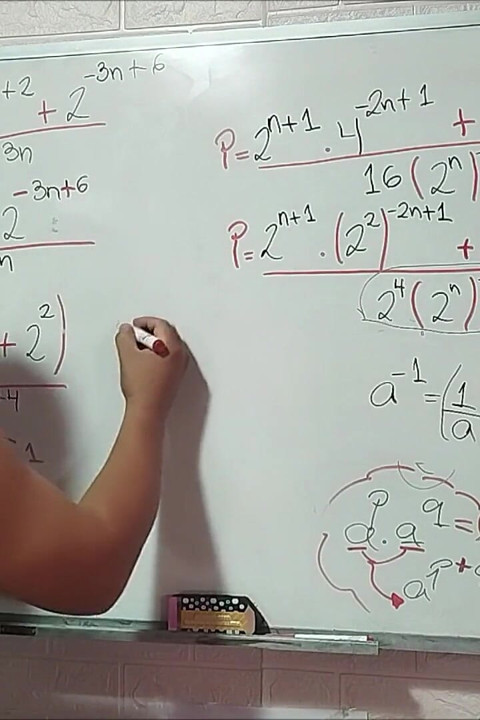 +2 + 2^{-3n+6}
3n
2^{-3n+6}
n
+ 2^2)
-4
-1
P = 2^{n+1} . 4^{-2n+1} +
16 (2^n)
P = 2^{n+1} . (2^2)^{-2n+1} +
2^4 (2^n)
a^{-1} = (1
a
a^p . a^q =
a^{p+